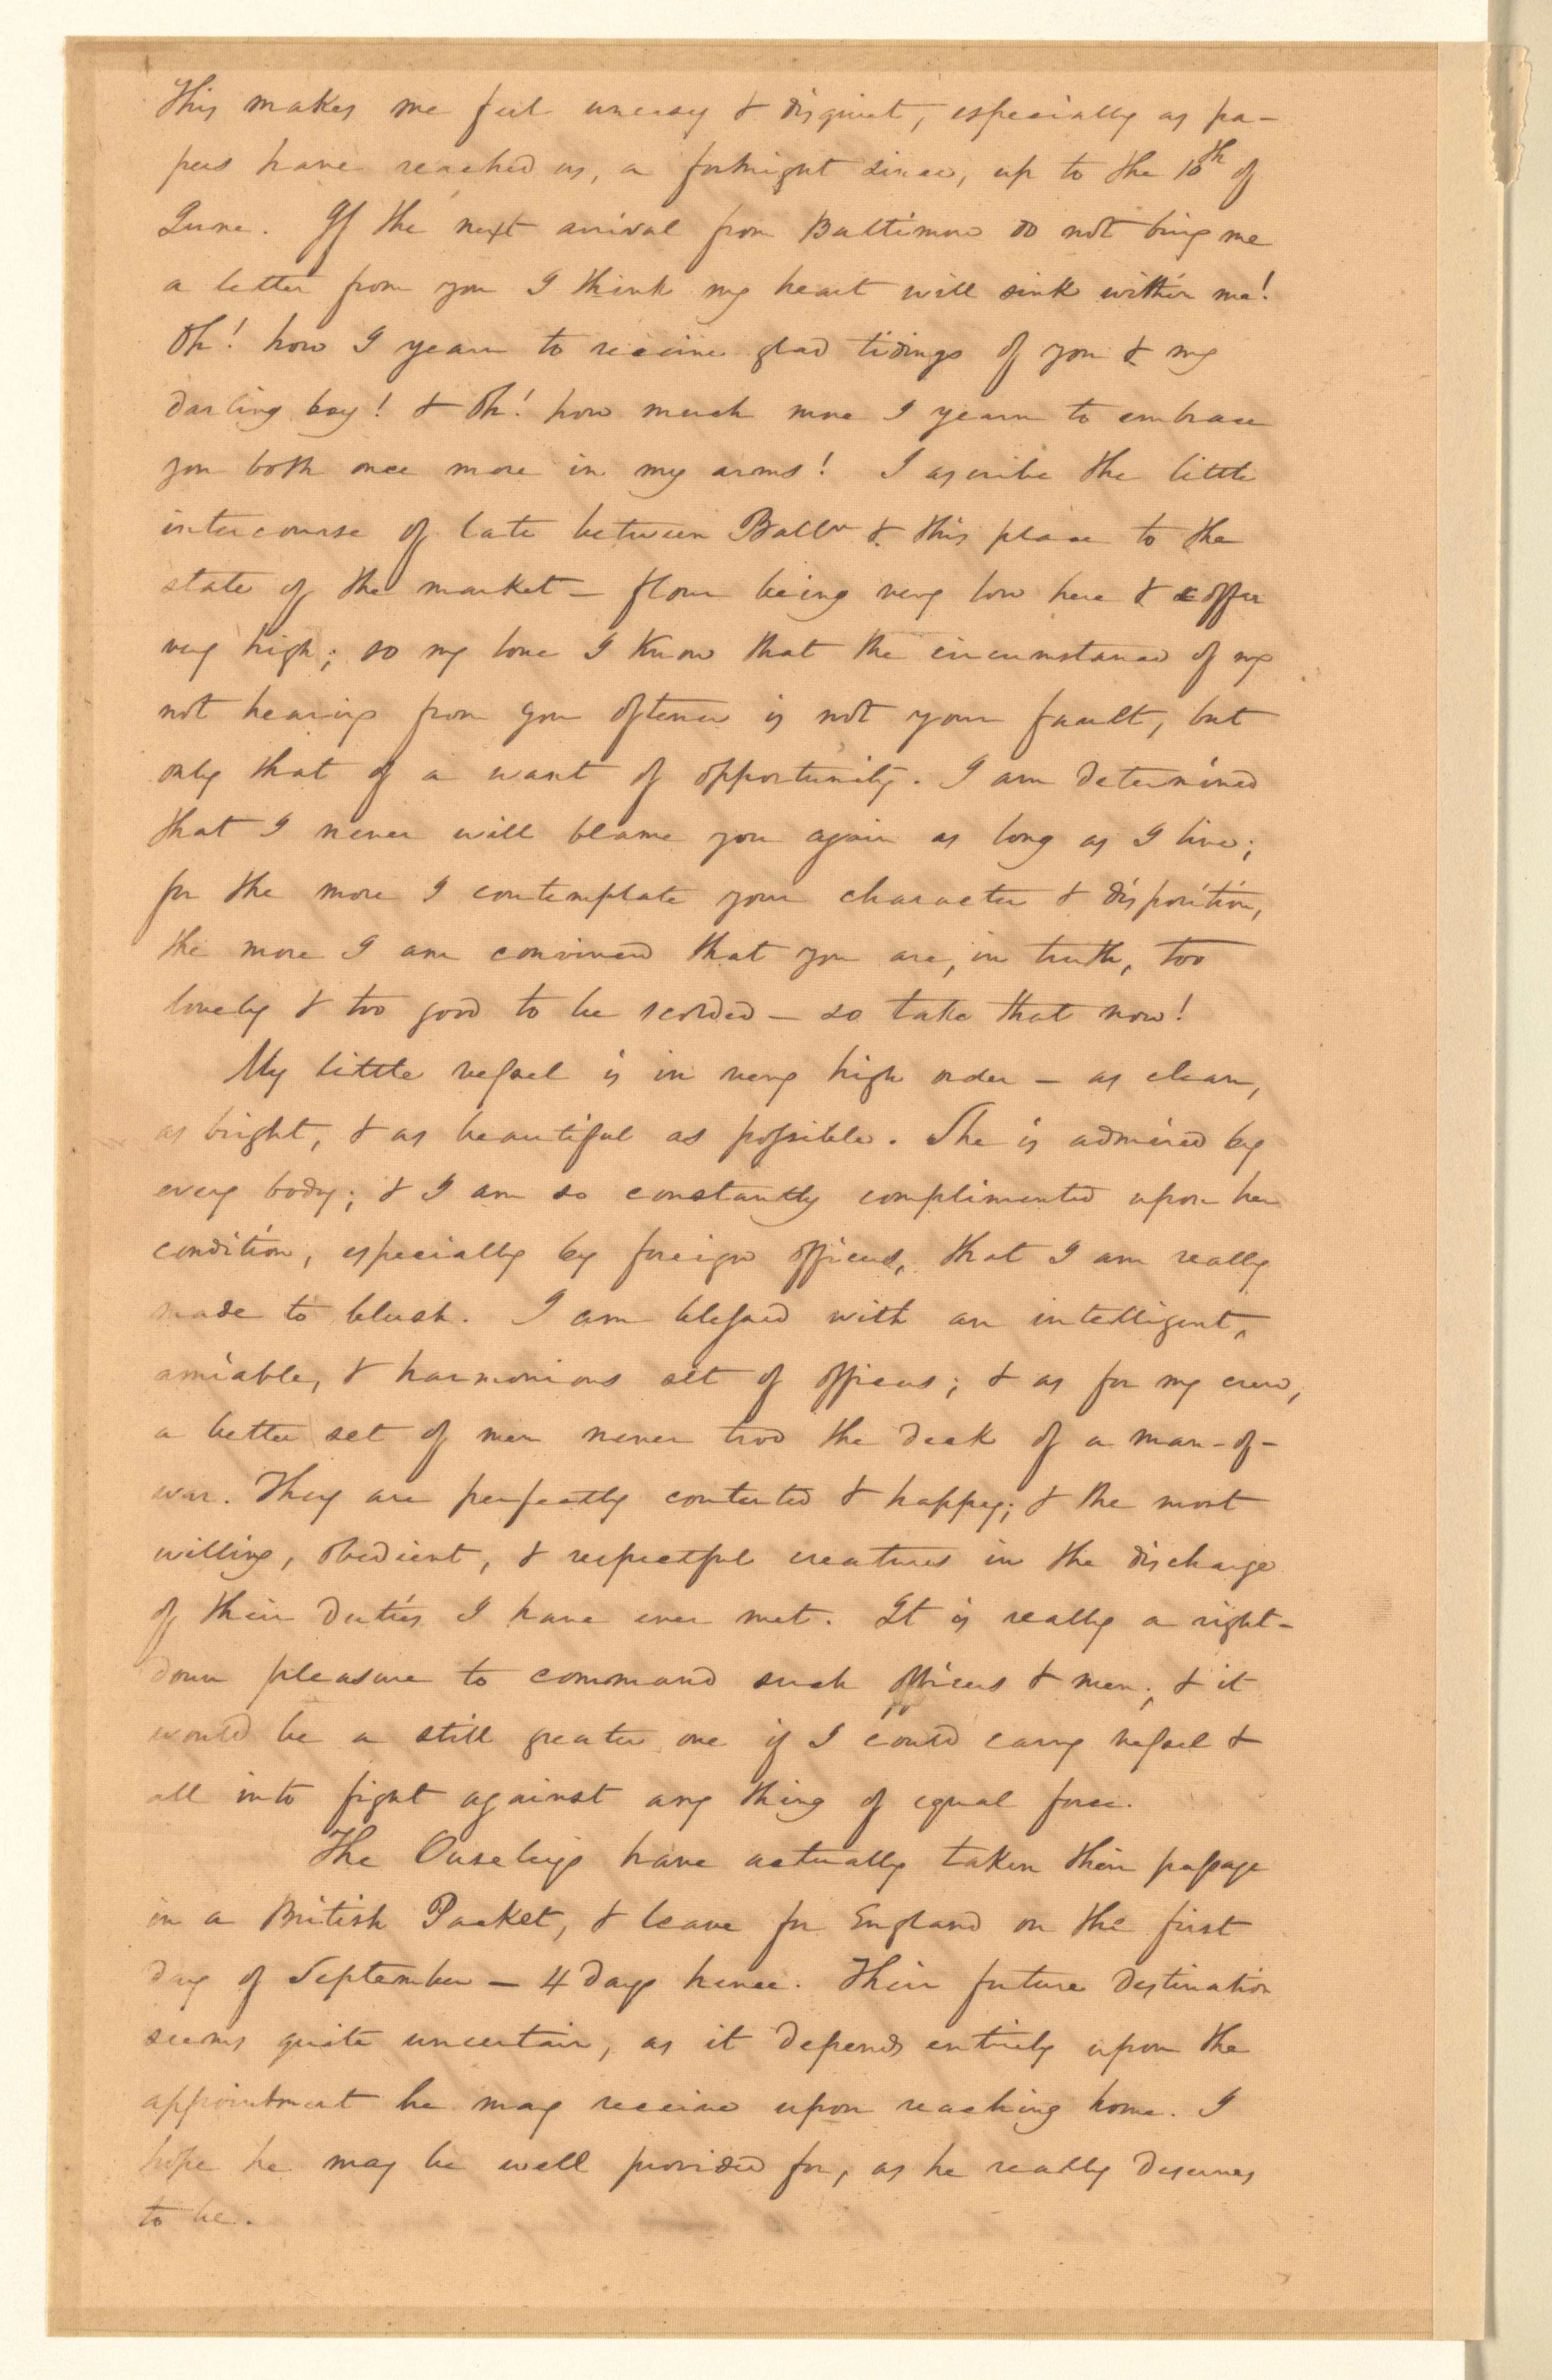 This makes me feel uneasy & disquiet, especially as pa-
pers have reached us, a fortnight since, up to the 10th of
June. If the next arrival from Baltimore do not bring me
a letter from you I think my heart will sink within me!
Oh! how I yearn to receive glad tidings of you & my
darling boy! & Oh! how much more I yearn to embrace
you both once more in my arms! I ascribe the little
intercourse of late between Balto & this place to the
state of the market – flour being very low here & coffee
very high; so my love I know that the circumstance of my
not hearing from you oftener is not your fault, but
only that of a want of opportunity. I am determined
that I never will blame you again as long as I live;
for the more I contemplate your character & disposition,
the more I am convinced that you are, in truth, too
lovely & too good to be scolded – so take that now!
My little vessel is in very high order – as clean,
as bright, & as beautiful as possible. She is admired by
every body; & I am so constantly complimented upon her
condition, especially by foreign officers, that I am really
made to blush. I am blessed with an intelligent,
amiable, & harmonious set of officers; & as for my crew,
a better set of men never trod the deck of a man-of-
war. They are perfectly contented & happy; & the most
willing, obedient, & respectful creatures in the discharge
of their duties I have ever met. It is really a right-
down pleasure to command such officers & men; & it
would be a still greater one if I could carry vessel &
all into fight against any thing of equal force.
The Ouseleys have actually taken their passage
in a British Packet, & leave for England on the first
day of September – 4 days hence. Their future destination
seems quite uncertain, as it depends entirely upon the
appointment he may receive upon reaching home. I
hope he may be well provided for, as he really deserves
to be.